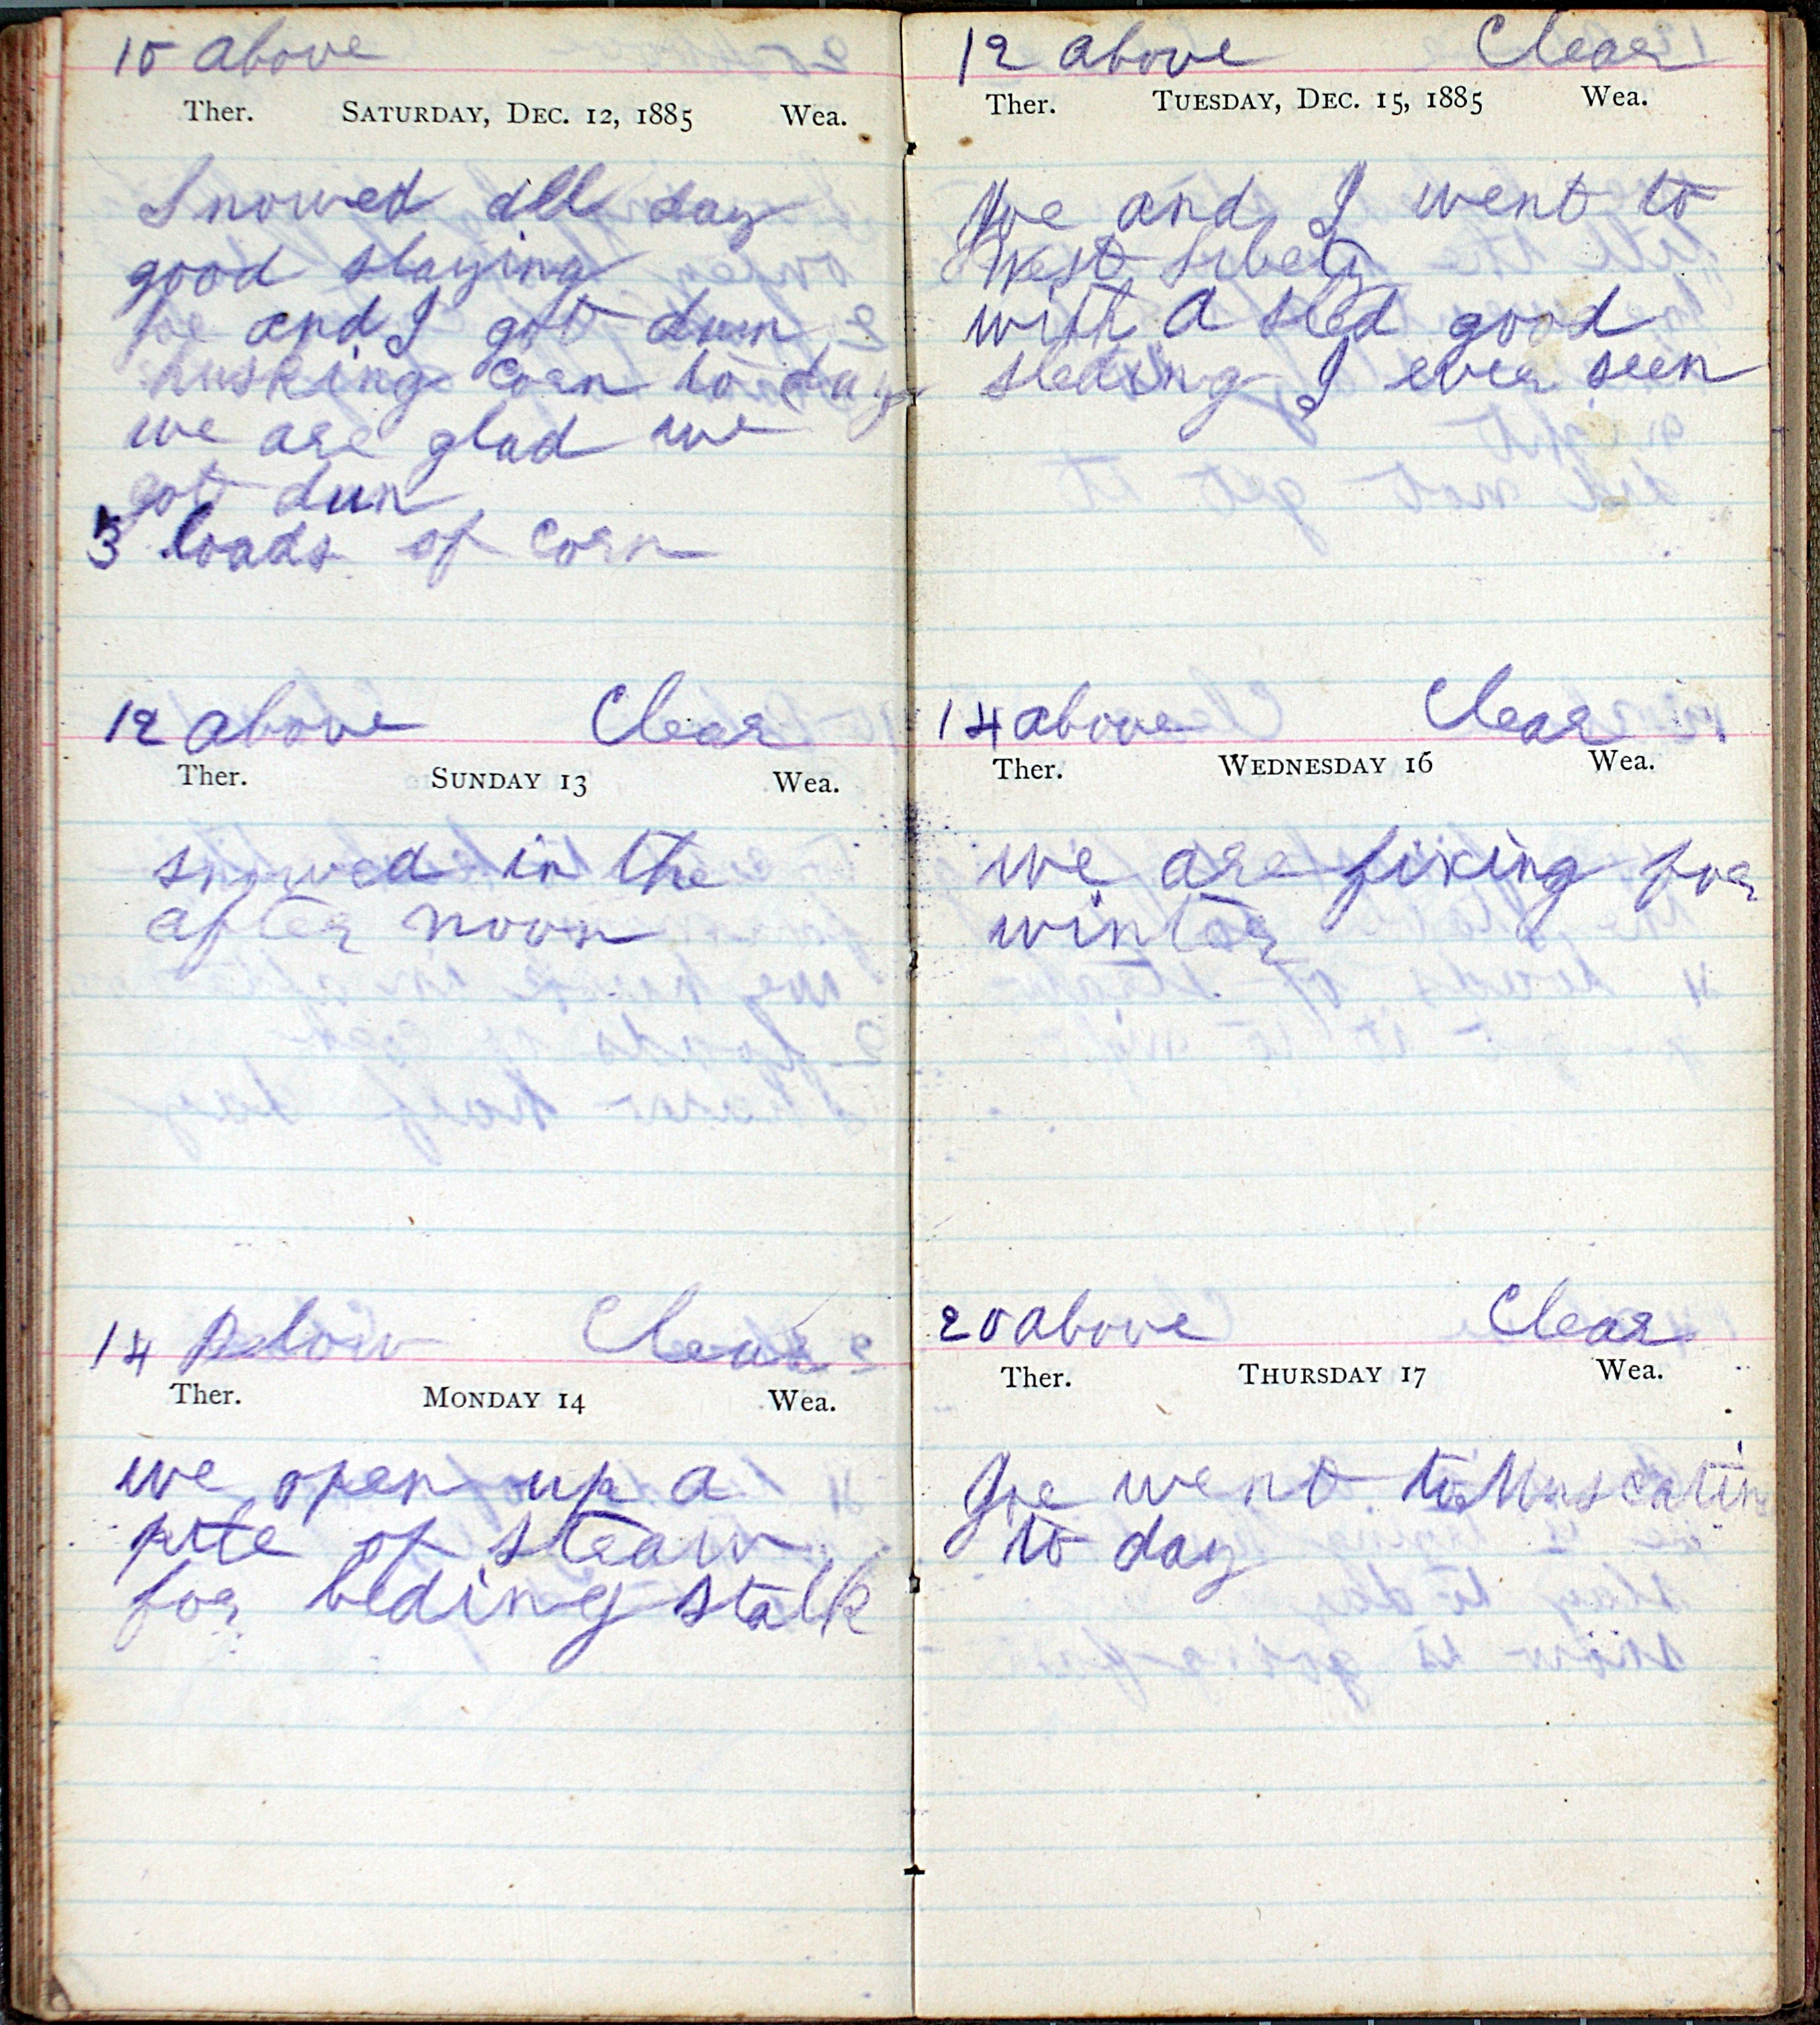 10 above
Ther. SATURDAY, DEC. 12, 1885 Wea.
Snowed all day
good slaying
Joe and I got dun
husking corn to day
we are glad we
got dun
3 loads of corn
12 above Clear
Ther. SUNDAY 13 Wea.
snowed in the
after noon
14 Below Clear
Ther. MONDAY 14 Wea.
we open up a
pile of straw
for beding stalk
12 above Clear
Ther. TUESDAY, DEC. 15, 1885 Wea.
Joe and I went to
West Liberty
with a sled good
sleding I ever seen
14 above Clear
Ther. WEDNESDAY 16 Wea.
we are fixing for
winter
20 above Clear
Ther. THURSDAY 17 Wea.
Joe went to Muscatin
to day